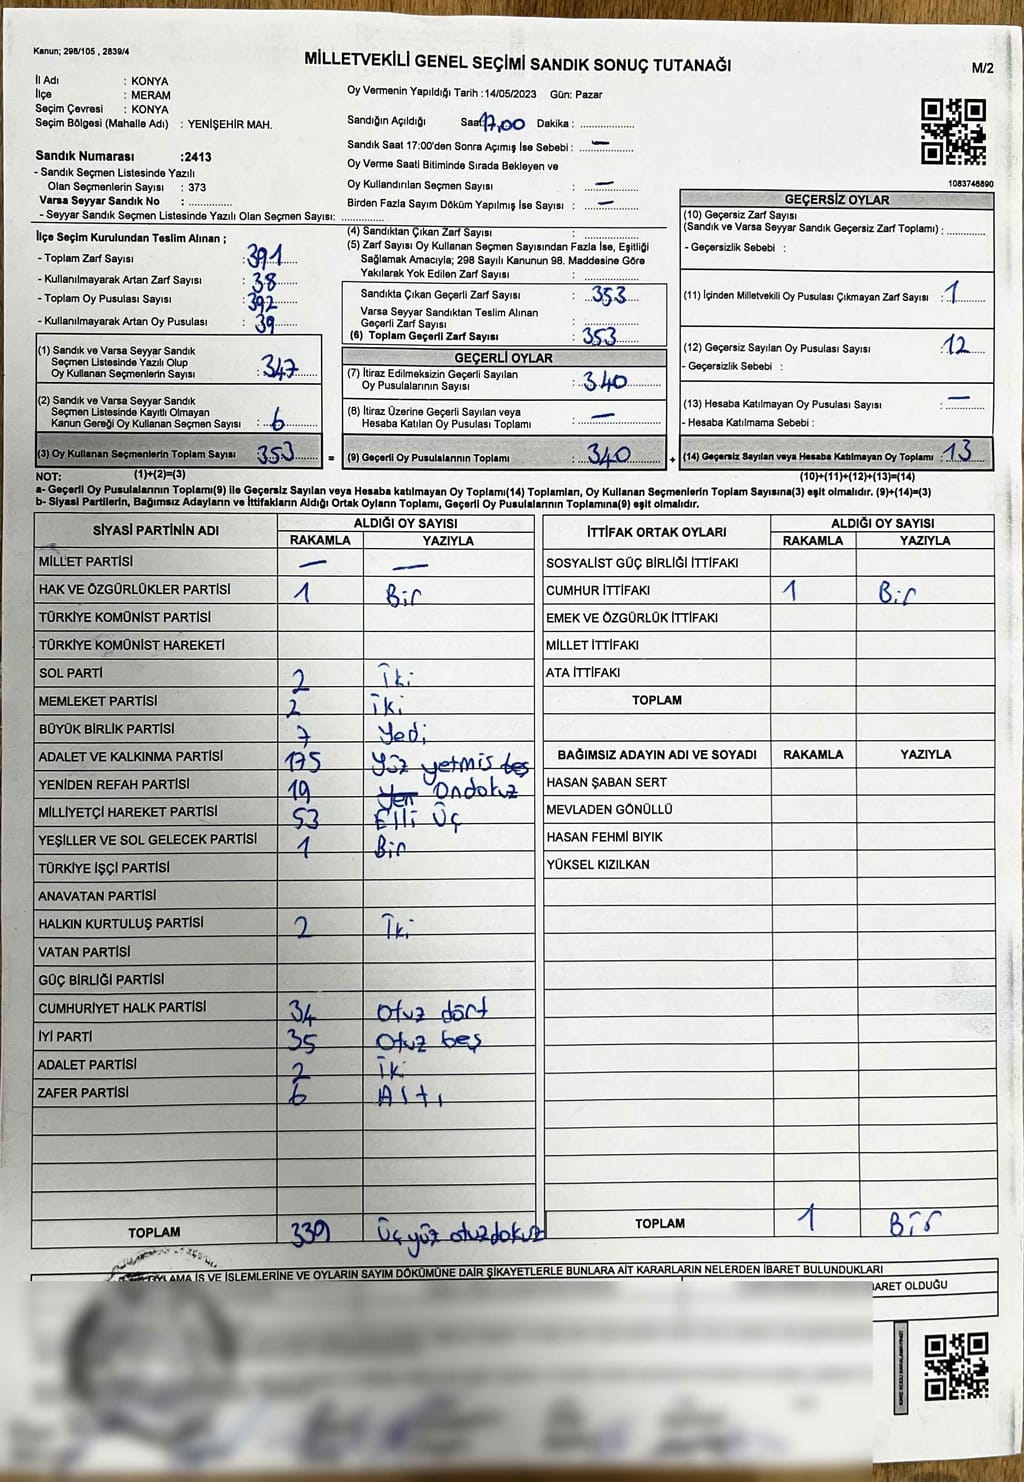 Kanun; 298/105 , 2839/4
MİLLETVEKİLİ GENEL SEÇİMİ SANDIK SONUÇ TUTANAĞI
M/2
İl Adı : KONYA
İlçe : MERAM
Seçim Çevresi : KONYA
Seçim Bölgesi (Mahalle Adı) : YENİŞEHİR MAH.
Sandık Numarası :2413
- Sandık Seçmen Listesinde Yazılı
Olan Seçmenlerin Sayısı : 373
Varsa Seyyar Sandık No : ..............
- Seyyar Sandık Seçmen Listesinde Yazılı Olan Seçmen Sayısı: ..............
Oy Vermenin Yapıldığı Tarih :14/05/2023 Gün: Pazar
Sandığın Açıldığı Saat 17,00 Dakika : ..............
Sandık Saat 17:00'den Sonra Açımış İse Sebebi : —
Oy Verme Saati Bitiminde Sırada Bekleyen ve
Oy Kullandırılan Seçmen Sayısı : —
Birden Fazla Sayım Döküm Yapılmış İse Sayısı : —
1083746890
İlçe Seçim Kurulundan Teslim Alınan ;
- Toplam Zarf Sayısı : 391
- Kullanılmayarak Artan Zarf Sayısı : 38
- Toplam Oy Pusulası Sayısı : 392
- Kullanılmayarak Artan Oy Pusulası : 39
(1) Sandık ve Varsa Seyyar Sandık
Seçmen Listesinde Yazılı Olup
Oy Kullanan Seçmenlerin Sayısı : 347
(2) Sandık ve Varsa Seyyar Sandık
Seçmen Listesinde Kayıtlı Olmayan
Kanun Gereği Oy Kullanan Seçmen Sayısı : 6
(3) Oy Kullanan Seçmenlerin Toplam Sayısı : 353 =
(4) Sandıktan Çıkan Zarf Sayısı : ..............
(5) Zarf Sayısı Oy Kullanan Seçmen Sayısından Fazla İse, Eşitliği
Sağlamak Amacıyla; 298 Sayılı Kanunun 98. Maddesine Göre
Yakılarak Yok Edilen Zarf Sayısı : ..............
Sandıkta Çıkan Geçerli Zarf Sayısı : 353
Varsa Seyyar Sandıktan Teslim Alınan
Geçerli Zarf Sayısı : ..............
(6) Toplam Geçerli Zarf Sayısı : 353
GEÇERLİ OYLAR
(7) İtiraz Edilmeksizin Geçerli Sayılan
Oy Pusulalarının Sayısı : 340
(8) İtiraz Üzerine Geçerli Sayılan veya
Hesaba Katılan Oy Pusulası Toplamı : —
(9) Geçerli Oy Pusulalarının Toplamı : 340 +
GEÇERSİZ OYLAR
(10) Geçersiz Zarf Sayısı
(Sandık ve Varsa Seyyar Sandık Geçersiz Zarf Toplamı) : ..............
- Geçersizlik Sebebi :
(11) İçinden Milletvekili Oy Pusulası Çıkmayan Zarf Sayısı : 1
(12) Geçersiz Sayılan Oy Pusulası Sayısı : 12
- Geçersizlik Sebebi :
(13) Hesaba Katılmayan Oy Pusulası Sayısı : —
- Hesaba Katılmama Sebebi :
(14) Geçersiz Sayılan veya Hesaba Katılmayan Oy Toplamı : 13
NOT: (1)+(2)=(3) (10)+(11)+(12)+(13)=(14)
a- Geçerli Oy Pusulalarının Toplamı(9) ile Geçersiz Sayılan veya Hesaba katılmayan Oy Toplamı(14) Toplamları, Oy Kullanan Seçmenlerin Toplam Sayısına(3) eşit olmalıdır. (9)+(14)=(3)
b- Siyasi Partilerin, Bağımsız Adayların ve İttifakların Aldığı Ortak Oyların Toplamı, Geçerli Oy Pusulalarının Toplamına(9) eşit olmalıdır.
SİYASİ PARTİNİN ADI ALDIĞI OY SAYISI
RAKAMLA YAZIYLA
MİLLET PARTİSİ — —
HAK VE ÖZGÜRLÜKLER PARTİSİ 1 Bir
TÜRKİYE KOMÜNİST PARTİSİ
TÜRKİYE KOMÜNİST HAREKETİ
SOL PARTİ 2 İki
MEMLEKET PARTİSİ 2 İki
BÜYÜK BİRLİK PARTİSİ 7 Yedi
ADALET VE KALKINMA PARTİSİ 175 Yüz yetmis beş
YENİDEN REFAH PARTİSİ 19 Yen Ondokuz
MİLLİYETÇİ HAREKET PARTİSİ 53 Elli Üç
YEŞİLLER VE SOL GELECEK PARTİSİ 1 Bir
TÜRKİYE İŞÇİ PARTİSİ
ANAVATAN PARTİSİ
HALKIN KURTULUŞ PARTİSİ 2 İki
VATAN PARTİSİ
GÜÇ BİRLİĞİ PARTİSİ
CUMHURİYET HALK PARTİSİ 34 Otuz dört
İYİ PARTİ 35 Otuz beş
ADALET PARTİSİ 2 İki
ZAFER PARTİSİ 6 Altı
TOPLAM 339 Üçyüz otuzdokuz
İTTİFAK ORTAK OYLARI ALDIĞI OY SAYISI
RAKAMLA YAZIYLA
SOSYALİST GÜÇ BİRLİĞİ İTTİFAKI
CUMHUR İTTİFAKI 1 Bir
EMEK VE ÖZGÜRLÜK İTTİFAKI
MİLLET İTTİFAKI
ATA İTTİFAKI
TOPLAM
BAĞIMSIZ ADAYIN ADI VE SOYADI RAKAMLA YAZIYLA
HASAN ŞABAN SERT
MEVLADEN GÖNÜLLÜ
HASAN FEHMİ BIYIK
YÜKSEL KIZILKAN
TOPLAM 1 Bir
OYLAMA İŞ VE İŞLEMLERİNE VE OYLARIN SAYIM DÖKÜMÜNE DAİR ŞİKAYETLERLE BUNLARA AİT KARARLARIN NELERDEN İBARET BULUNDUKLARI
BARET OLDUĞU